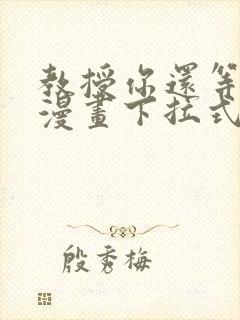 教授你還等
漫畫下拉式
殷秀梅